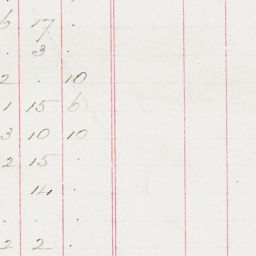 6 17 .
. 3 .
2 . 10
1 15 6
3 10 10
2 15 .
14 .
. . .
2 2 .